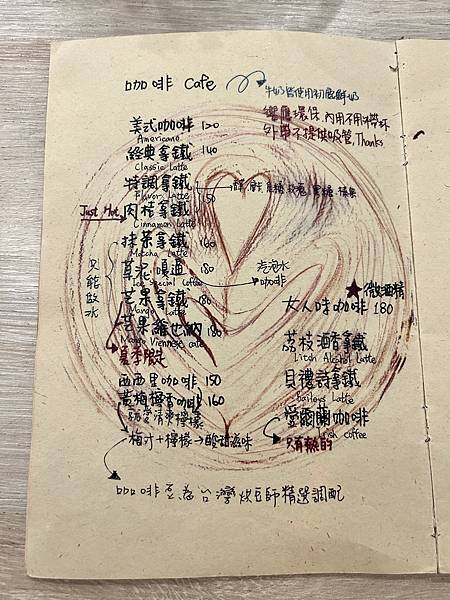 咖啡 Cafe
牛奶皆使用初鹿鮮奶
響應環保,內用不用
外帶不提供吸管,Thanks
美式咖啡 120
Americano
經典拿鐵 140
Classic Latte
特調拿鐵
Flavor Latte 150
Just Hot 肉桂拿鐵
Cinnamon Latte
抹茶拿鐵 160
Matcha Latte
只能做冰
180
Ice Special Coffee
氣泡水
咖啡
芒果拿鐵 180
Mango Latte
芒果維也納 180
Mango Viennese cafe
夏季限定
★微酒精
大人味咖啡 180
荔枝酒香拿鐵
Litch Alcohol Latte
貝禮詩拿鐵
Baileys Latte
愛爾蘭咖啡
Irish coffee
只有熱的
西西里咖啡 150
黃梅梅香咖啡 160
梅汁+檸檬→酸甜滋味
咖啡豆為台灣烘豆師精選調配